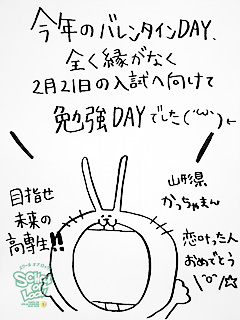 今年のバレンタインDAY、
全く縁がなく
2月21日の入試へ向けて
勉強DAYでした(´･ω･`)
目指せ
未来の
高専生!!
山形県
かっちゃまん
恋叶った人
おめでとう
\(^o^)/☆
SCHOOL
OF
LOCK!